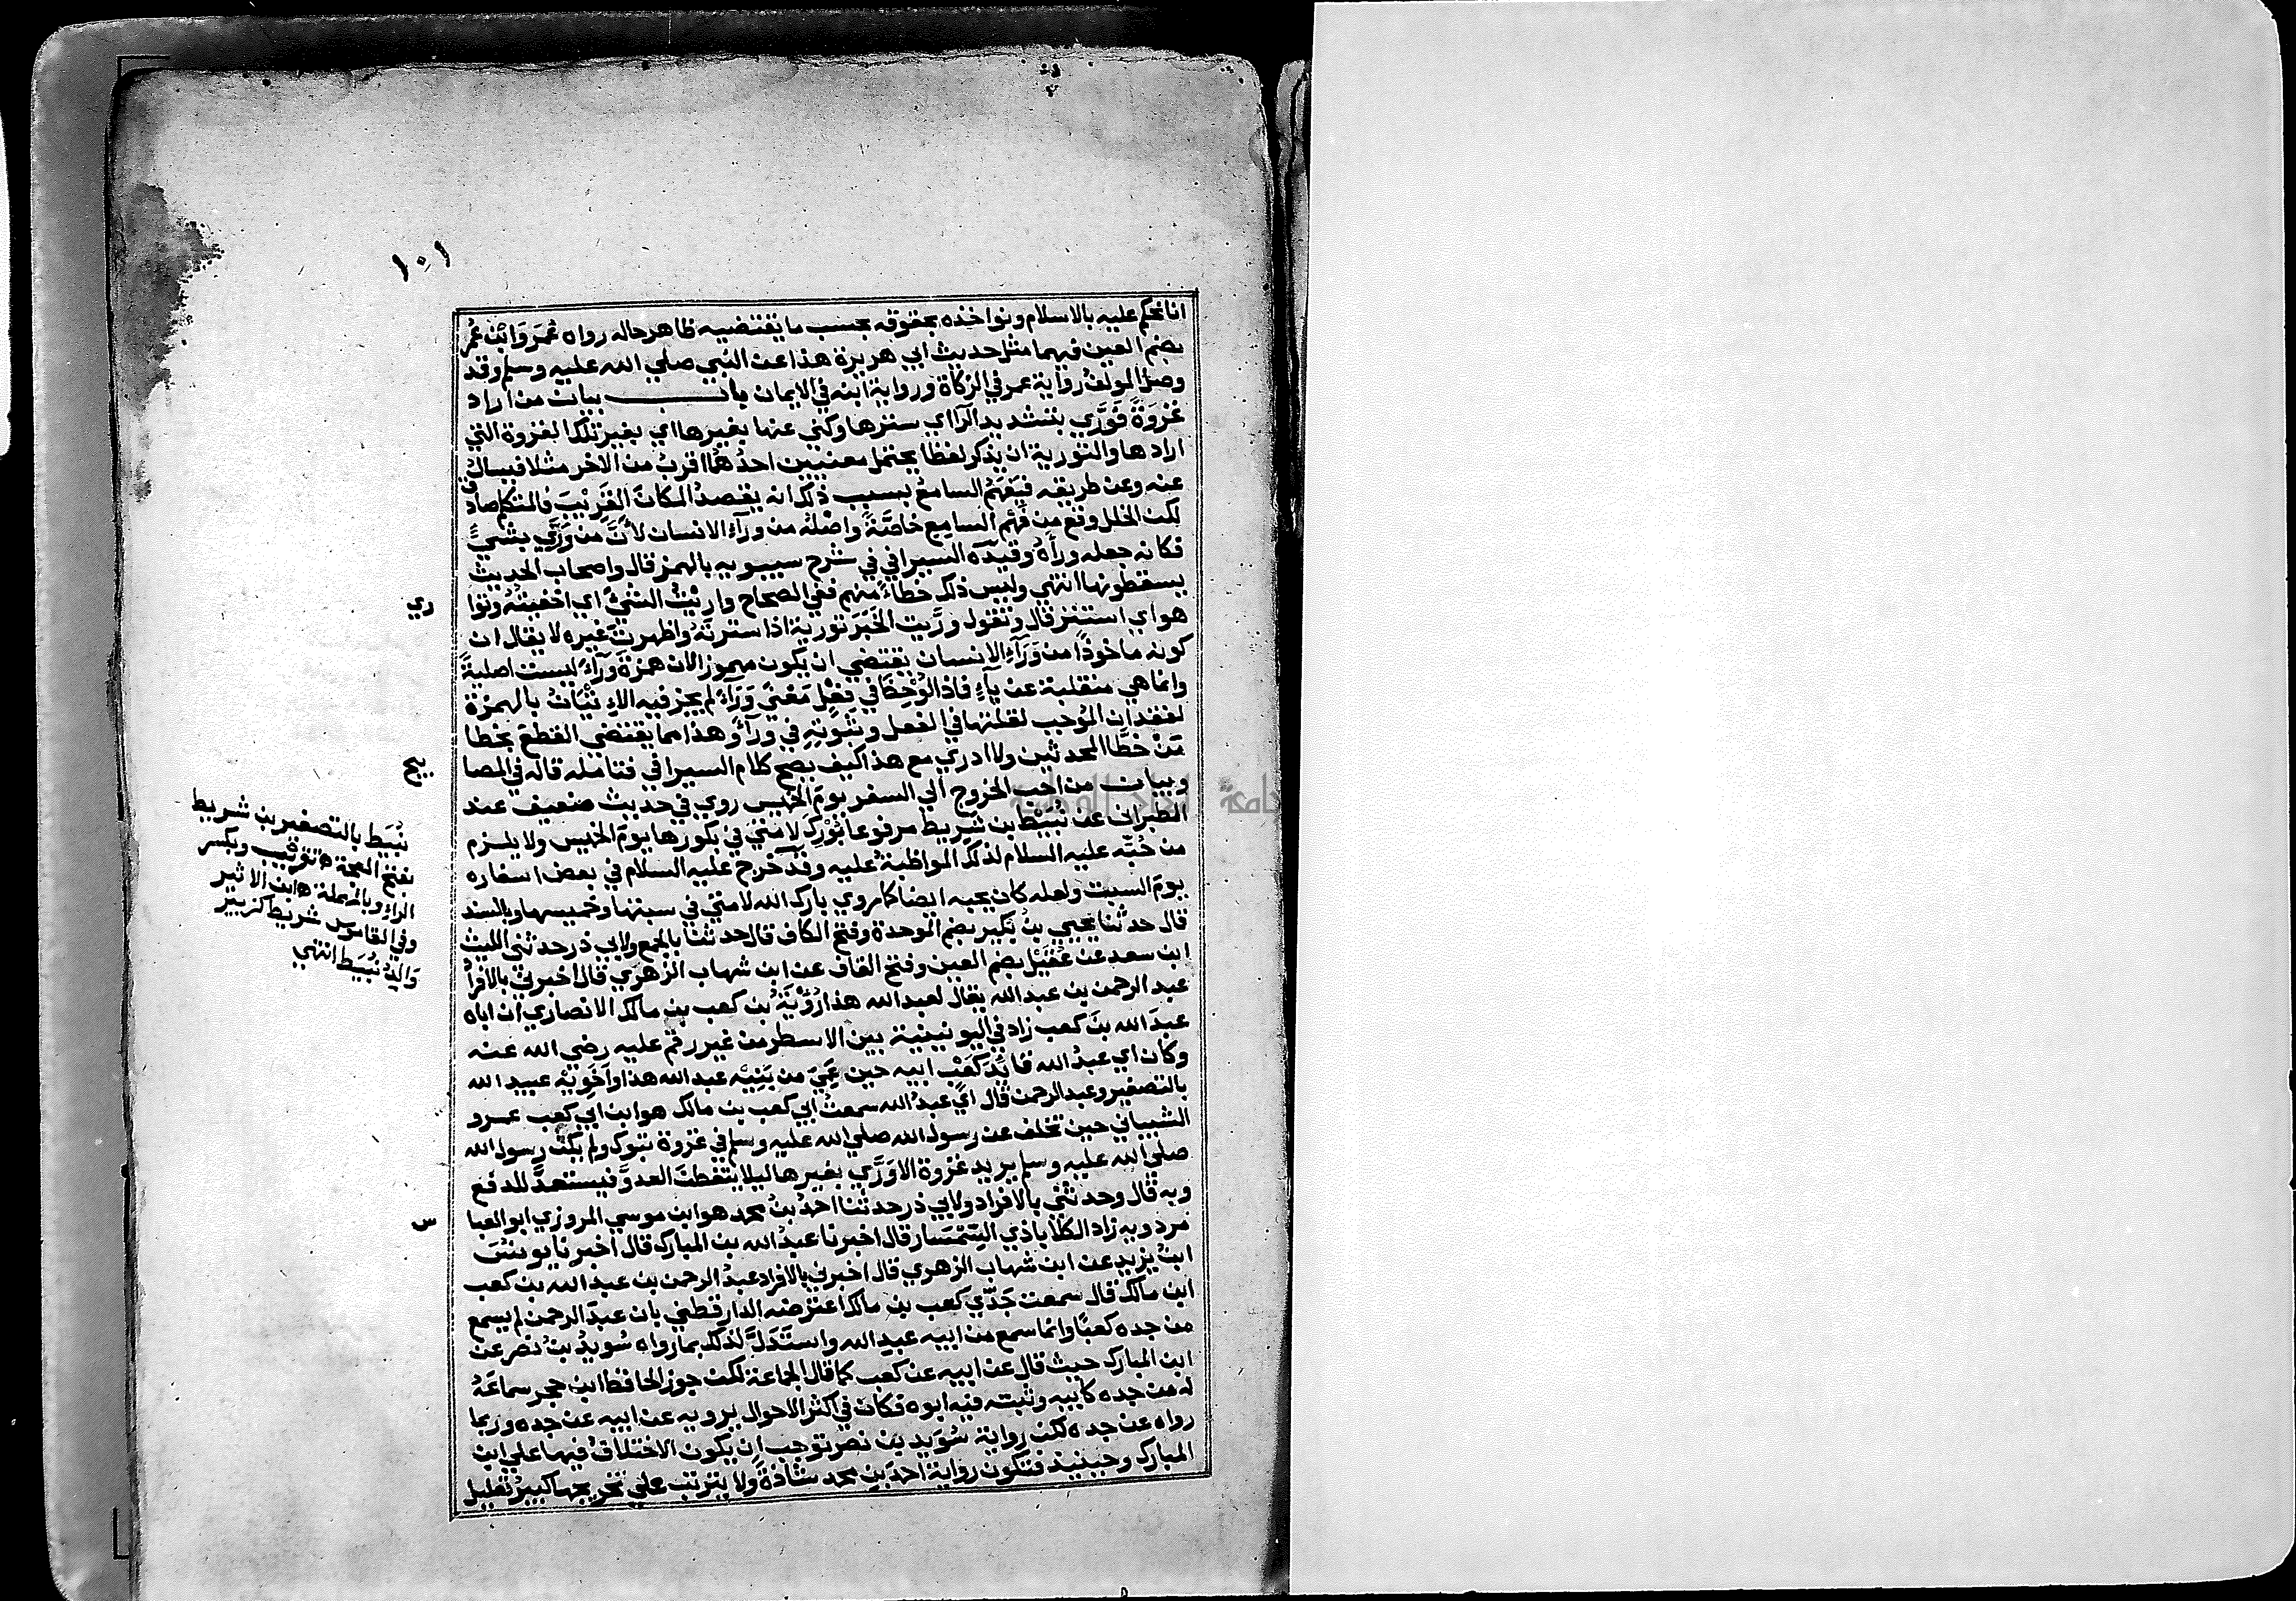 ١٠١
انا نحكم عليه بالاسلام ونواخذه بحقوقه بحسب ما يقتضيه ظاهر حاله رواه عُمَرَ وَابْنُ عُمَر
بضم العين فيهما مثل حديث ابي هريرة هذا عن النبي صلي الله عليه وسلم وقد
وصل المولف رواية عمر في الزكاة ورواية ابنه في الايمان باب بيان من اراد
غزوة فورّي بتشديد الرآ اي سترها وكني عنها بغيرها اي بغير تلك الغزوة التي
ارادها والتورية ان يذكر لفظا يحتمل معنيين احدهما اقرب من الاخر مثلا فيسال
عنه وعن طريقه فيفهم السامع بسبب ذلك انه يقصد المكان القريب فالمتكلم صادق
لكن الخلل وقع من فهم السامع خاصّةً واصله من ورآء الانسان لانّ من ورّي بشيءٍ
فكانه جعله ورأه وقيده السيرافي في شرح سيبويه بالهمز قال واصحاب الحديث
يسقطونها انتهي وليس ذلك خطاءً منهم ففي الصحاح واريْت الشيءَ اي اخفيته وتوا
ري
هو اي استتر قال وتقول ورّيت الخبر تورية اذا سترته واظهرت غيره لا يقال ان
كونه ماخوذا من ورآء الانسان يقتضي ان يكون مهموز الان همزة ورآء ليست اصلية
وانما هي منقلبة عن يآء فاذا لوحظ في فعل معني وراء لم يجز فيه الاتيان بالهمزة
لفقدان الموجب لقلبها في الفعل وثبوته في ورآء وهذا مما يقتضي القطع بخطا
من خطّا المحدثين ولا ادري مع هذا كيف يصح كلام السيرافي فتامله قاله في المصا
بيح
وبيان من احب الخروج الي السفر يوم الخميس روي في حديث ضعيف عند
الطبراني عن نُبَيْط بن شَرِيط مرفوعا بورك لامتي في بكورها يوم الخميس ولا يلزم
من حُبّه عليه السلام لذلك المواظبة عليه وقد خرج عليه السلام في بعض اسفاره
يوم السبت ولعله كان يحبه ايضا كما روي بارك الله لامتي في سبتها وخميسها وبالسند
قال حدثنا يحيي بن بُكير بضم الموحدة وفتح الكاف قال حدثنا بالجمع ولابي ذر حدثني الليث
ابن سعد عن عُقَيْل بضم العين وفتح القاف عن ابن شهاب الزهري قال اخبرني بالافراد
عبد الرحمن بن عبد الله يقال لعبد الله هذا رؤية بن كعب بن مالك الانصاري ان اباه
عبدَ الله بن كعب زاد في اليونينية بين الاسطر من غير رقم عليه رضي الله عنه
وكان اي عبد الله قائدَ كَعْب ابيه حين عَمِيَ من بَنِيْه عبد الله هذا واخويه عبيد الله
بالتصغير وعبد الرحمن قال اي عبد الله سمعت ابي كعب بن مالك هو ابن ابي كعب عمرو
الشيباني حين تخلف عن رسول الله صلي الله عليه وسلم في غزوة تبوك ولم يكن رسول الله
صلي الله عليه وسلم يريد غزوة الا ورّي بغيرها ليلا يتفطن العدوّ فيستعدّ للدفع
وبه قال وحدثني بالافراد ولابي ذر حدثنا احمد بن محمد هو ابن موسي المروزي ابو العبا
س
مردويه زاد الكلاباذي السِّمْسَار قال اخبرنا عبد الله بن المبارك قال اخبرنا يونس
ابن يزيد عن ابن شهاب الزهري قال اخبرني بالافراد عبد الرحمن بن عبد الله بن كعب
ابن مالك قال سمعت جَدّي كعب بن مالك اعترضه الدارقطني بان عبد الرحمن لم يسمع
من جده كعبا وانما سمع من ابيه عبد الله واستدلّ لذلك بما رواه سُويد بن نصر عن
ابن المبارك حيث قال عن ابيه عن كعب كما قال الجماعة لكن جوز الحافظ ابن حجر سماعه
له من جده كابيه وثبته فيه ابوه فكان في اكثر الاحوال يرويه عن ابيه عن جده وربما
رواه عن جده لكن رواية سُوَيد بن نصر توجب ان يكون الاختلاف فيها علي ابن
المبارك وحينيذ فتكون رواية احمد بن محمد شاذة ولا يترتب علي تخريجها كبير تعليل
نُبَيط بالتصغير بن شريط
بفتح المعجمة ه تقريب وبكسر
الراء وبالمهملة ه ابن الاثير
وفي القاموس شريط كزبير
والد نُبَيط انتهي